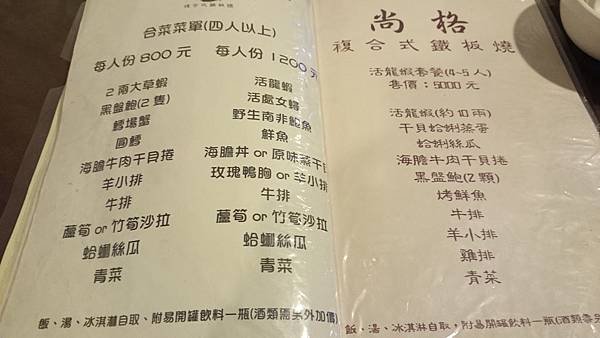 合菜菜單(四人以上)
每人份 800 元
2兩大草蝦
黑盤鮑(2隻)
鱈場蟹
圓鱈
海膽牛肉干貝捲
羊小排
牛排
蘆筍 or 竹筍沙拉
蛤蜊絲瓜
青菜
每人份 1200 元
活龍蝦
活處女蟳
野生南非鮑魚
鮮魚
海膽丼 or 原味蒸干貝
玫瑰鴨胸 or 羊小排
牛排
蘆筍 or 竹筍沙拉
蛤蜊絲瓜
青菜
飯、湯、冰淇淋自取、附易開罐飲料一瓶(酒類需另外加價)
尚格
複合式鐵板燒
活龍蝦套餐(4~5人)
售價:5000元
活龍蝦(約10兩)
干貝蛤蜊蒸蛋
蛤蜊絲瓜
海膽牛肉干貝捲
黑盤鮑(2顆)
烤鮮魚
牛排
羊小排
雞排
青菜
飯、湯、冰淇淋自取,附易開罐飲料一瓶(酒類需另